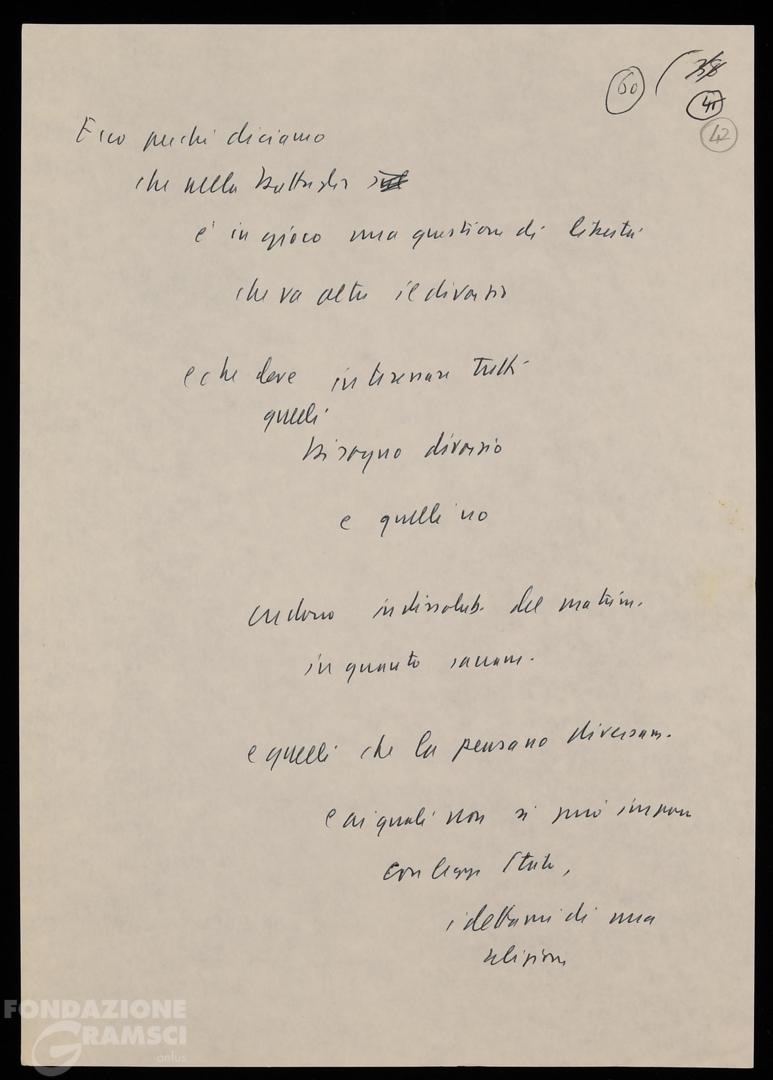 60 ( 38
41
42
Ecco perché diciamo
che nella battaglia
è in gioco una questione di libertà
che va oltre il divorzio
e che deve interessare tutti
quelli
bisogno divorzio
e quelli no
credono indissolub. del matrim.
in quanto sacram.
e quelli che la pensano diversam.
e ai quali non si può imporre
con legge Stato,
i dettami di una
religione
FONDAZIONE
GRAMSCI
onlus